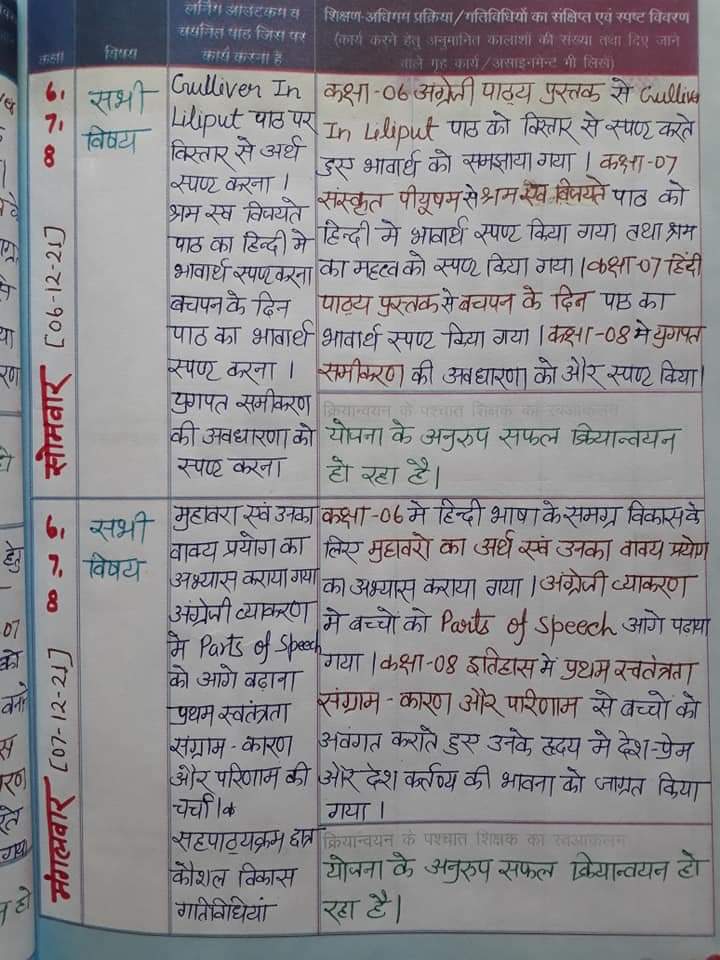 लर्निंग आउटकम व
चयनित पाठ जिस पर
कार्य करना है
शिक्षण-अधिगम प्रक्रिया/गतिविधियों का संक्षिप्त एवं स्पष्ट विवरण
(कार्य करने हेतु अनुमानित कालांशों की संख्या तथा दिए जाने
वाले गृह कार्य/असाइनमेन्ट भी लिखें)
कक्षा
विषय
6.
7.
8
सोमवार [06-12-21]
सभी
विषय
Gulliver In
Liliput पाठ पर
विस्तार से अर्थ
स्पष्ट करना।
श्रम एव विजयते
पाठ का हिन्दी मे
भावार्थ स्पष्ट करना
बचपन के दिन
पाठ का भावार्थ
स्पष्ट करना।
युगपत समीकरण
की अवधारणा को
स्पष्ट करना
कक्षा-06 अंग्रेजी पाठ्य पुस्तक से Gulliver
In Liliput पाठ को विस्तार से स्पष्ट करते
हुए भावार्थ को समझाया गया। कक्षा-07
संस्कृत पीयूषम से श्रम एव विजयते पाठ को
हिन्दी मे भावार्थ स्पष्ट किया गया तथा श्रम
का महत्व को स्पष्ट किया गया। कक्षा-07 हिंदी
पाठ्य पुस्तक से बचपन के दिन पाठ का
भावार्थ स्पष्ट किया गया। कक्षा-08 मे युगपत
समीकरण की अवधारणा को और स्पष्ट किया।
क्रियान्वयन के पश्चात शिक्षक का स्वआकलन
योजना के अनुरुप सफल क्रियान्वयन
हो रहा है।
6.
7.
8
मंगलवार [07-12-21]
सभी
विषय
मुहावरा एवं उनका
वाक्य प्रयोग का
अभ्यास कराया गया
अंग्रेजी व्याकरण
मे Parts of Speech
को आगे बढ़ाना
प्रथम स्वतंत्रता
संग्राम - कारण
और परिणाम की
चर्चा।
सहपाठ्यक्रम छात्र
कौशल विकास
गतिविधियां
कक्षा-06 मे हिन्दी भाषा के समग्र विकास के
लिए मुहावरो का अर्थ एवं उनका वाक्य प्रयोग
का अभ्यास कराया गया। अंग्रेजी व्याकरण
मे बच्चो को Parts of Speech आगे पढाया
गया। कक्षा-08 इतिहास मे प्रथम स्वतंत्रता
संग्राम - कारण और परिणाम से बच्चो को
अवंगत कराते हुए उनके हृदय मे देश-प्रेम
और देश कर्तव्य की भावना को जाग्रत किया
गया।
क्रियान्वयन के पश्चात शिक्षक का स्वआकलन
योजना के अनुरुप सफल क्रियान्वयन हो
रहा है।